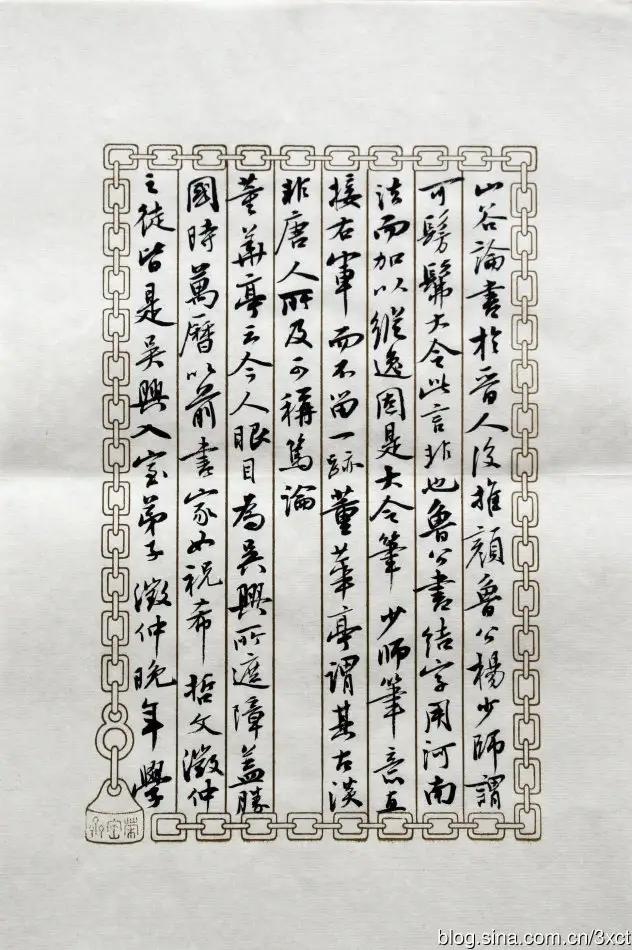 山谷論書於晉人後推顏魯公楊少師謂
可髣髴大令此言非也魯公書結字用河南
法而加以縱逸固是大令筆少師筆意直
接右軍而不留一跡董華亭謂其古淡
非唐人所及可稱篤論
董華亭云今人眼目為吳興所遮障蓋勝
國時萬曆以前書家如祝希哲文徵仲
之徒皆是吳興入室弟子徵仲晚年學
榮宝斋
blog.sina.com.cn/3xct